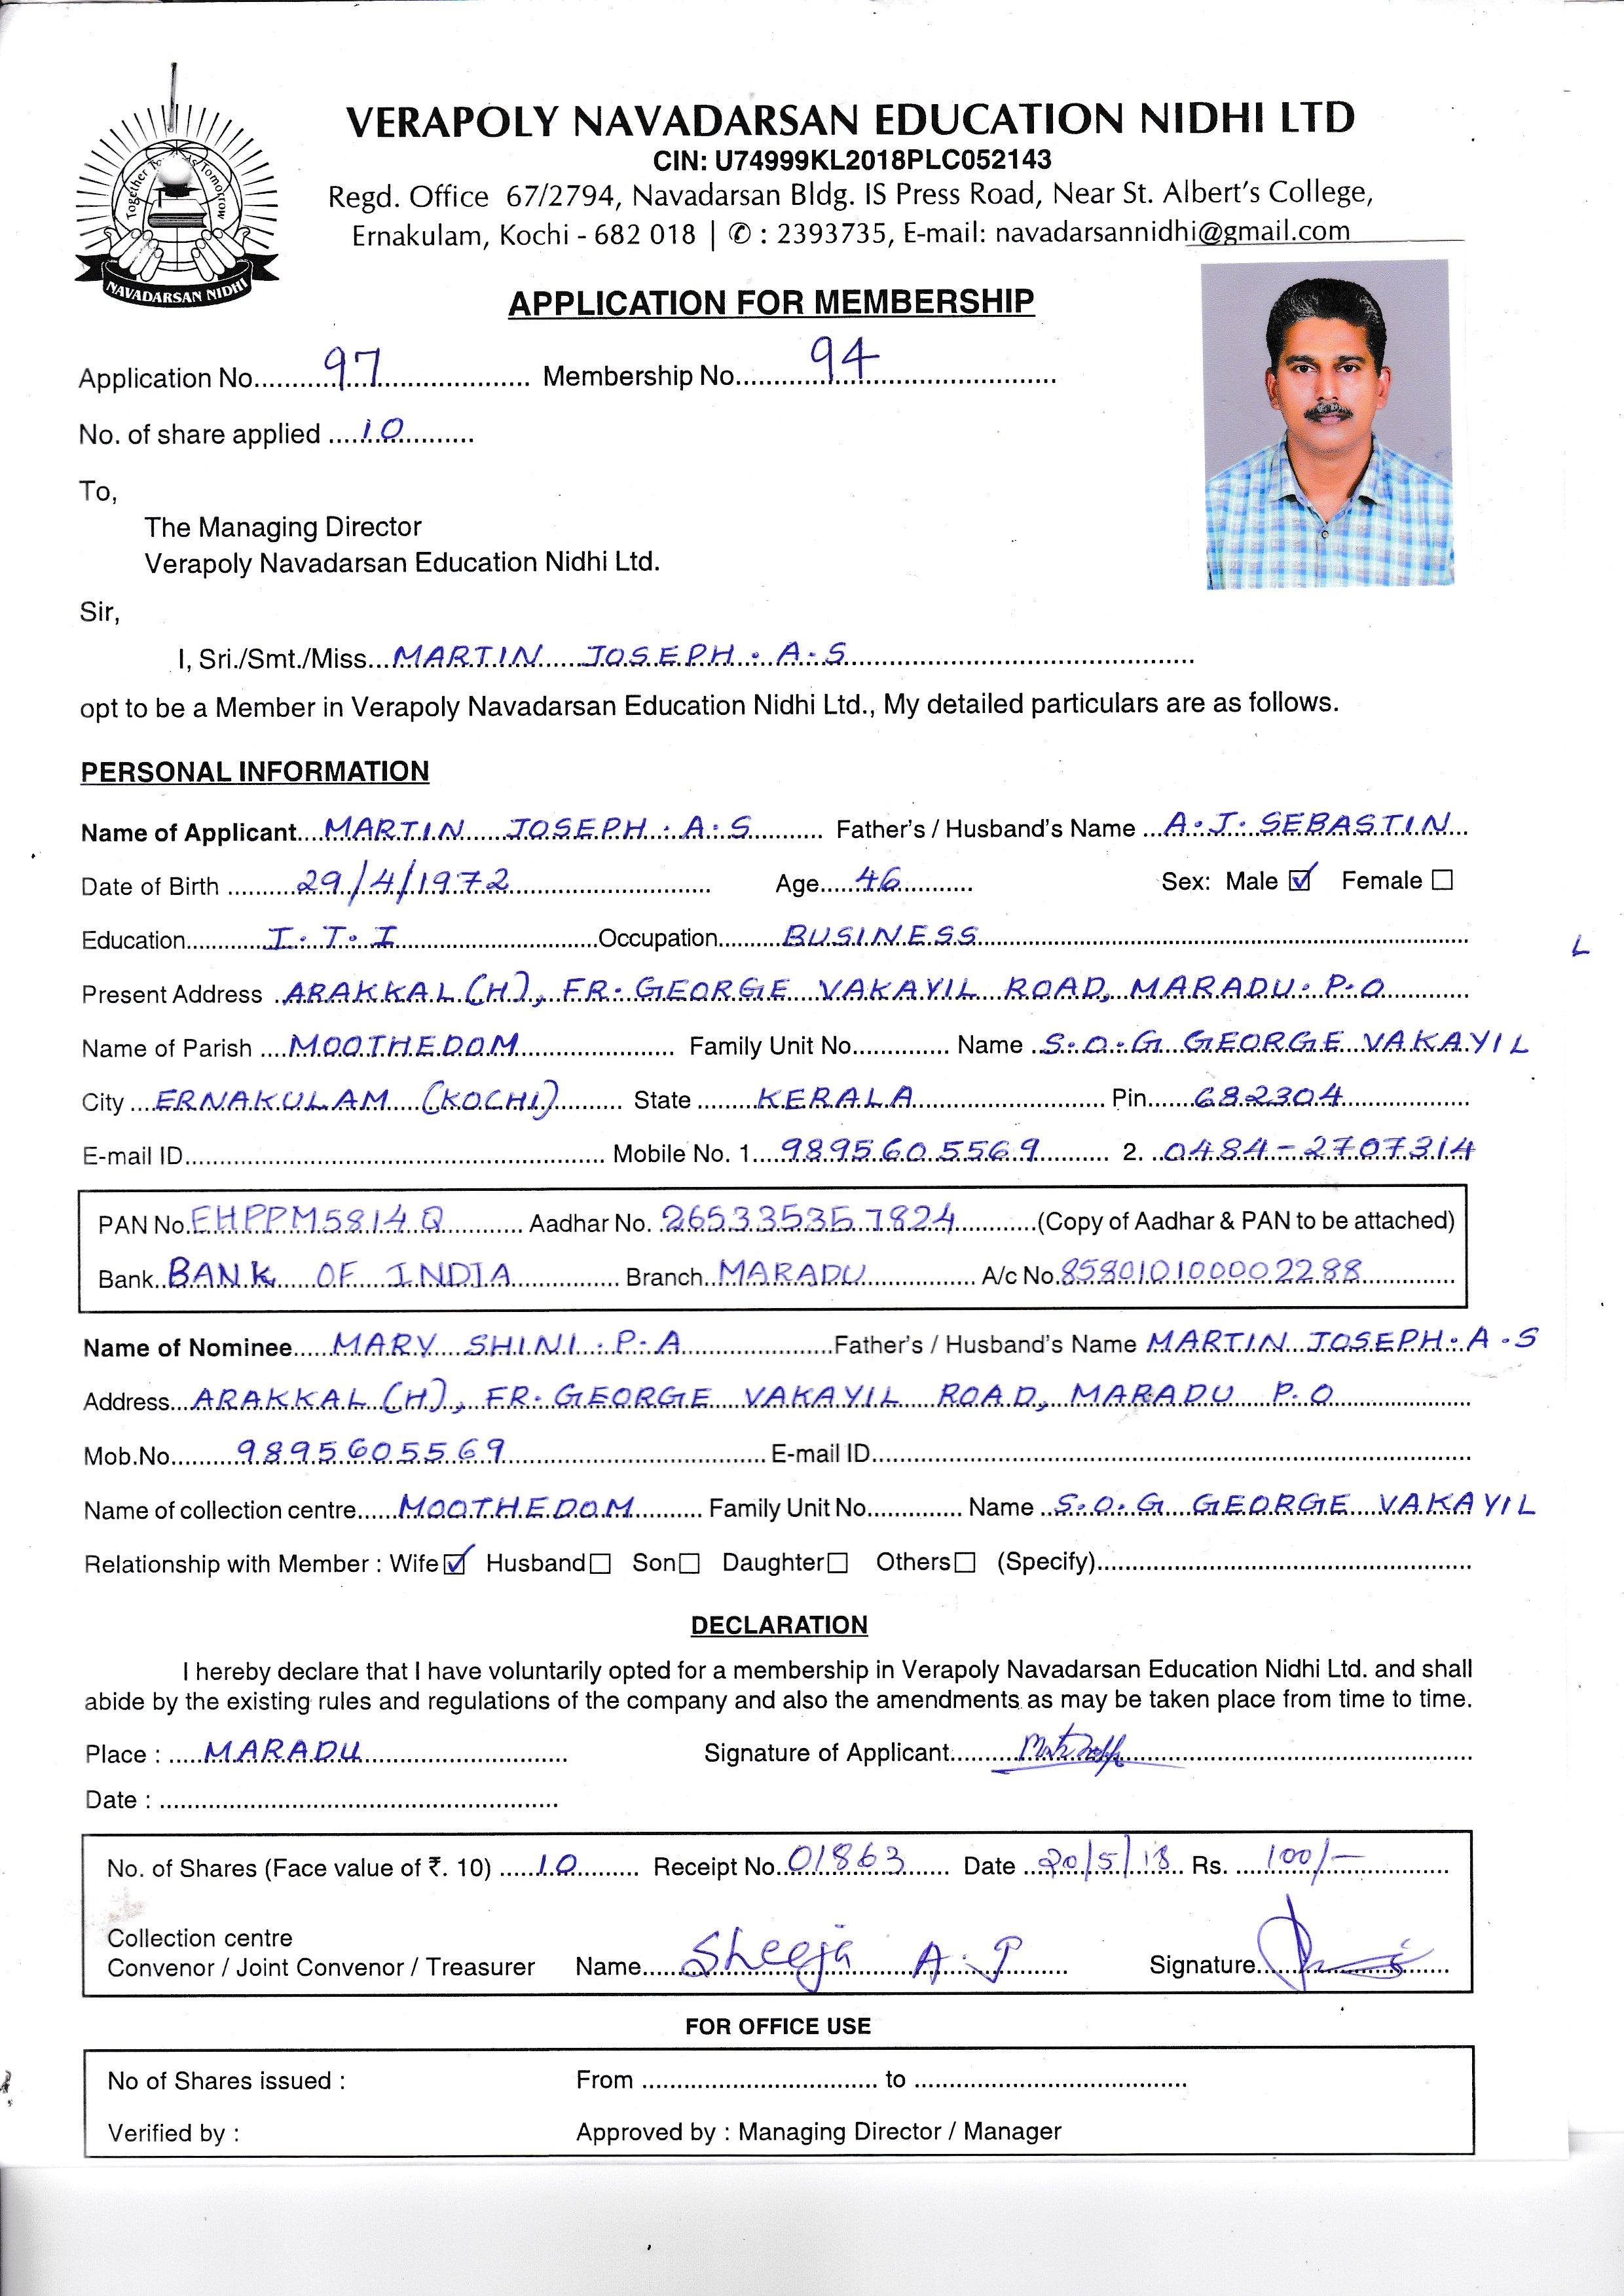 VERAPOLY NAVADARSAN EDUCATION NIDHI LTD
CIN: U74999KL2018PLC052143
Regd. Office 67/2794, Navadarsan Bldg. IS Press Road, Near St. Albert's College,
Ernakulam, Kochi - 682 018 | ✆ : 2393735, E-mail: navadarsannidhi@gmail.com
NAVADARSAN NIDHI
APPLICATION FOR MEMBERSHIP
Application No. 97 Membership No. 94
No. of share applied 10
To,
The Managing Director
Verapoly Navadarsan Education Nidhi Ltd.
Sir,
I, Sri./Smt./Miss MARTIN JOSEPH. A.S
opt to be a Member in Verapoly Navadarsan Education Nidhi Ltd., My detailed particulars are as follows.
PERSONAL INFORMATION
Name of Applicant MARTIN JOSEPH. A.S Father's / Husband's Name A.J. SEBASTIN
Date of Birth 29/4/1972 Age 46 Sex: Male ☑ Female ☐
Education I.T.I Occupation BUSINESS
Present Address ARAKKAL (H), FR. GEORGE VAKAYIL ROAD, MARADU. P.O
Name of Parish MOOTHEDOM Family Unit No. Name S.O.G GEORGE VAKAYIL
City ERNAKULAM (KOCHI) State KERALA Pin 682304
E-mail ID Mobile No. 1 9895605569 2. 0484-2707314
PAN No. EHPPM5814Q Aadhar No. 265335357824 (Copy of Aadhar & PAN to be attached)
Bank BANK OF INDIA Branch MARADU A/c No. 858010100002288
Name of Nominee MARY SHINI. P.A Father's / Husband's Name MARTIN JOSEPH. A.S
Address ARAKKAL (H), FR. GEORGE VAKAYIL ROAD, MARADU P.O
Mob.No. 9895605569 E-mail ID
Name of collection centre MOOTHEDOM Family Unit No. Name S.O.G GEORGE VAKAYIL
Relationship with Member : Wife ☑ Husband ☐ Son ☐ Daughter ☐ Others ☐ (Specify)
DECLARATION
I hereby declare that I have voluntarily opted for a membership in Verapoly Navadarsan Education Nidhi Ltd. and shall
abide by the existing rules and regulations of the company and also the amendments as may be taken place from time to time.
Place : MARADU Signature of Applicant
Date :
No. of Shares (Face value of ₹. 10) 10 Receipt No. 01863 Date 20/5/18 Rs. 100/-
Collection centre
Convenor / Joint Convenor / Treasurer Name Sheeja A.J Signature
FOR OFFICE USE
No of Shares issued : From to
Verified by : Approved by : Managing Director / Manager